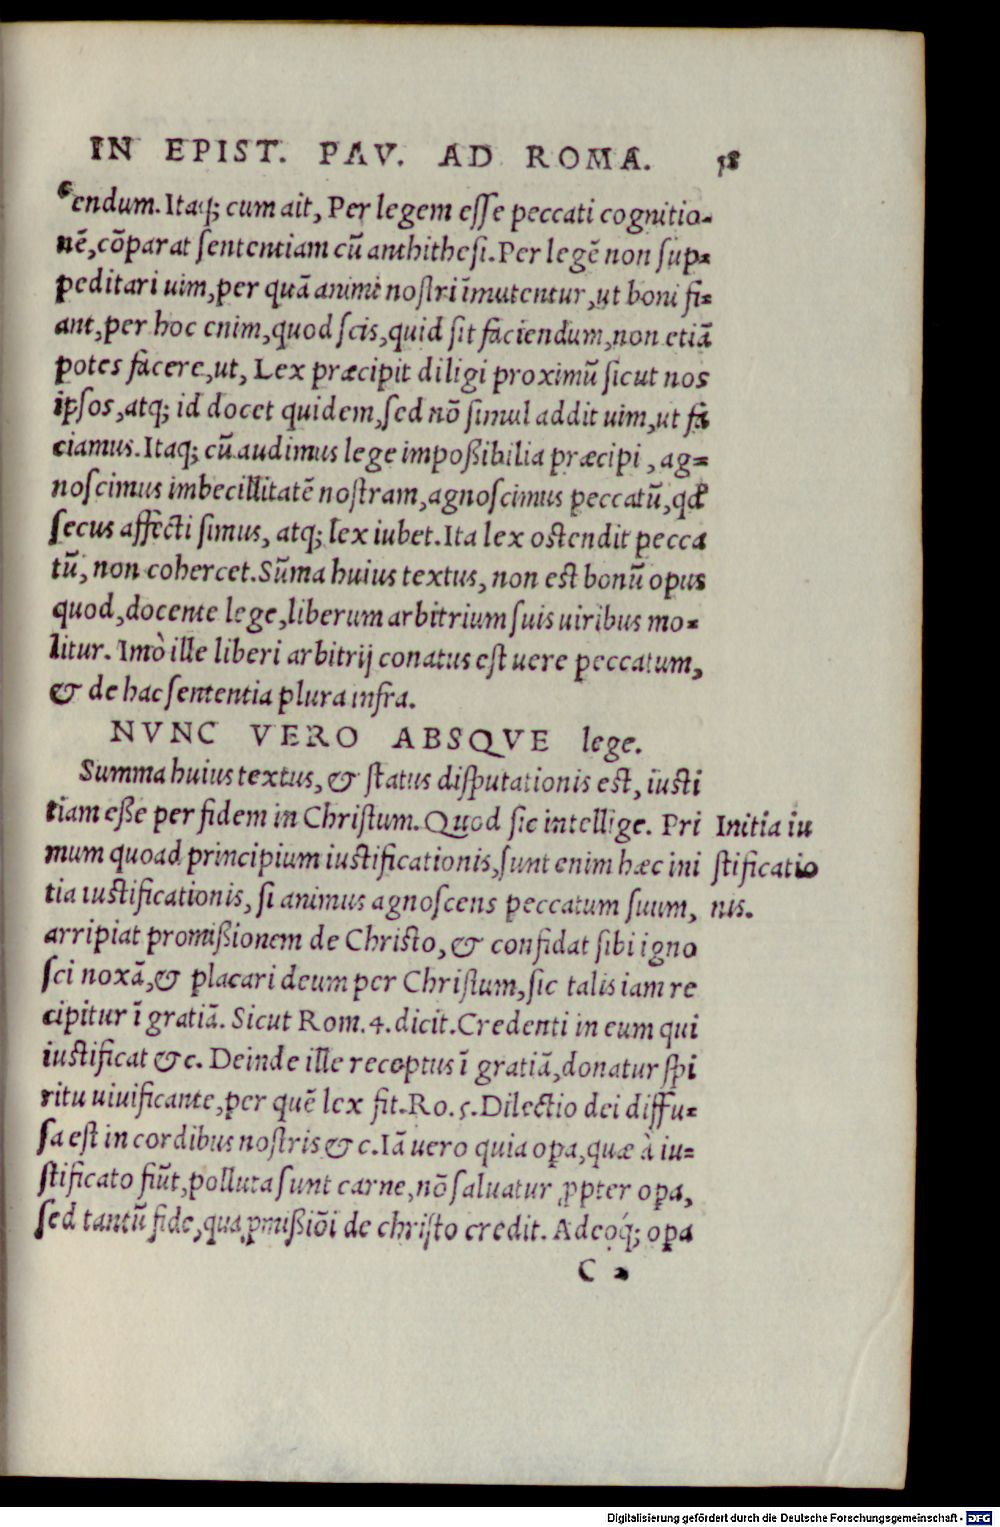 IN EPIST. PAV. AD ROMA. 58
cendum. Itaq; cum ait, Per legem esse peccati cognitio-
nē, cōparat sententiam cū anthithesi. Per legē non sup-
peditari uim, per quā animi nostri īmutentur, ut boni fi-
ant, per hoc enim, quod scis, quid sit faciendum, non etiā
potes facere, ut, Lex præcipit diligi proximū sicut nos
ipsos, atq; id docet quidem, sed nō simul addit uim, ut fa
ciamus. Itaq; cū audimus lege impoßibilia præcipi, ag-
noscimus imbecillitatē nostram, agnoscimus peccatū, qd
secus affecti simus, atq; lex iubet. Ita lex ostendit pecca
tū, non cohercet. Sūma huius textus, non est bonū opus
quod, docente lege, liberum arbitrium suis uiribus mo-
litur. Imò ille liberi arbitrij conatus est uere peccatum,
& de hac sententia plura infra.
NVNC VERO ABSQVE lege.
Summa huius textus, & status disputationis est, iusti
tiam eße per fidem in Christum. Quod sic intellige. Pri
mum quoad principium iustificationis, sunt enim hæc ini
tia iustificationis, si animus agnoscens peccatum suum,
arripiat promißionem de Christo, & confidat sibi igno
sci noxā, & placari deum per Christum, sic talis iam re
cipitur ī gratiā. Sicut Rom. 4. dicit. Credenti in eum qui
iustificat &c. Deinde ille receptus ī gratiā, donatur spi
ritu uiuificante, per quē lex fit. Ro. 5. Dilectio dei diffu-
sa est in cordibus nostris &c. Iā uero quia opa, quæ à iu-
stificato fiūt, polluta sunt carne, nō saluatur ꝓpter opa,
sed tantū fide, qua ꝓmißiōi de christo credit. Adeoq́; opa
Initia iu
stificatio
nis.
C 2
Digitalisierung gefördert durch die Deutsche Forschungsgemeinschaft - DFG